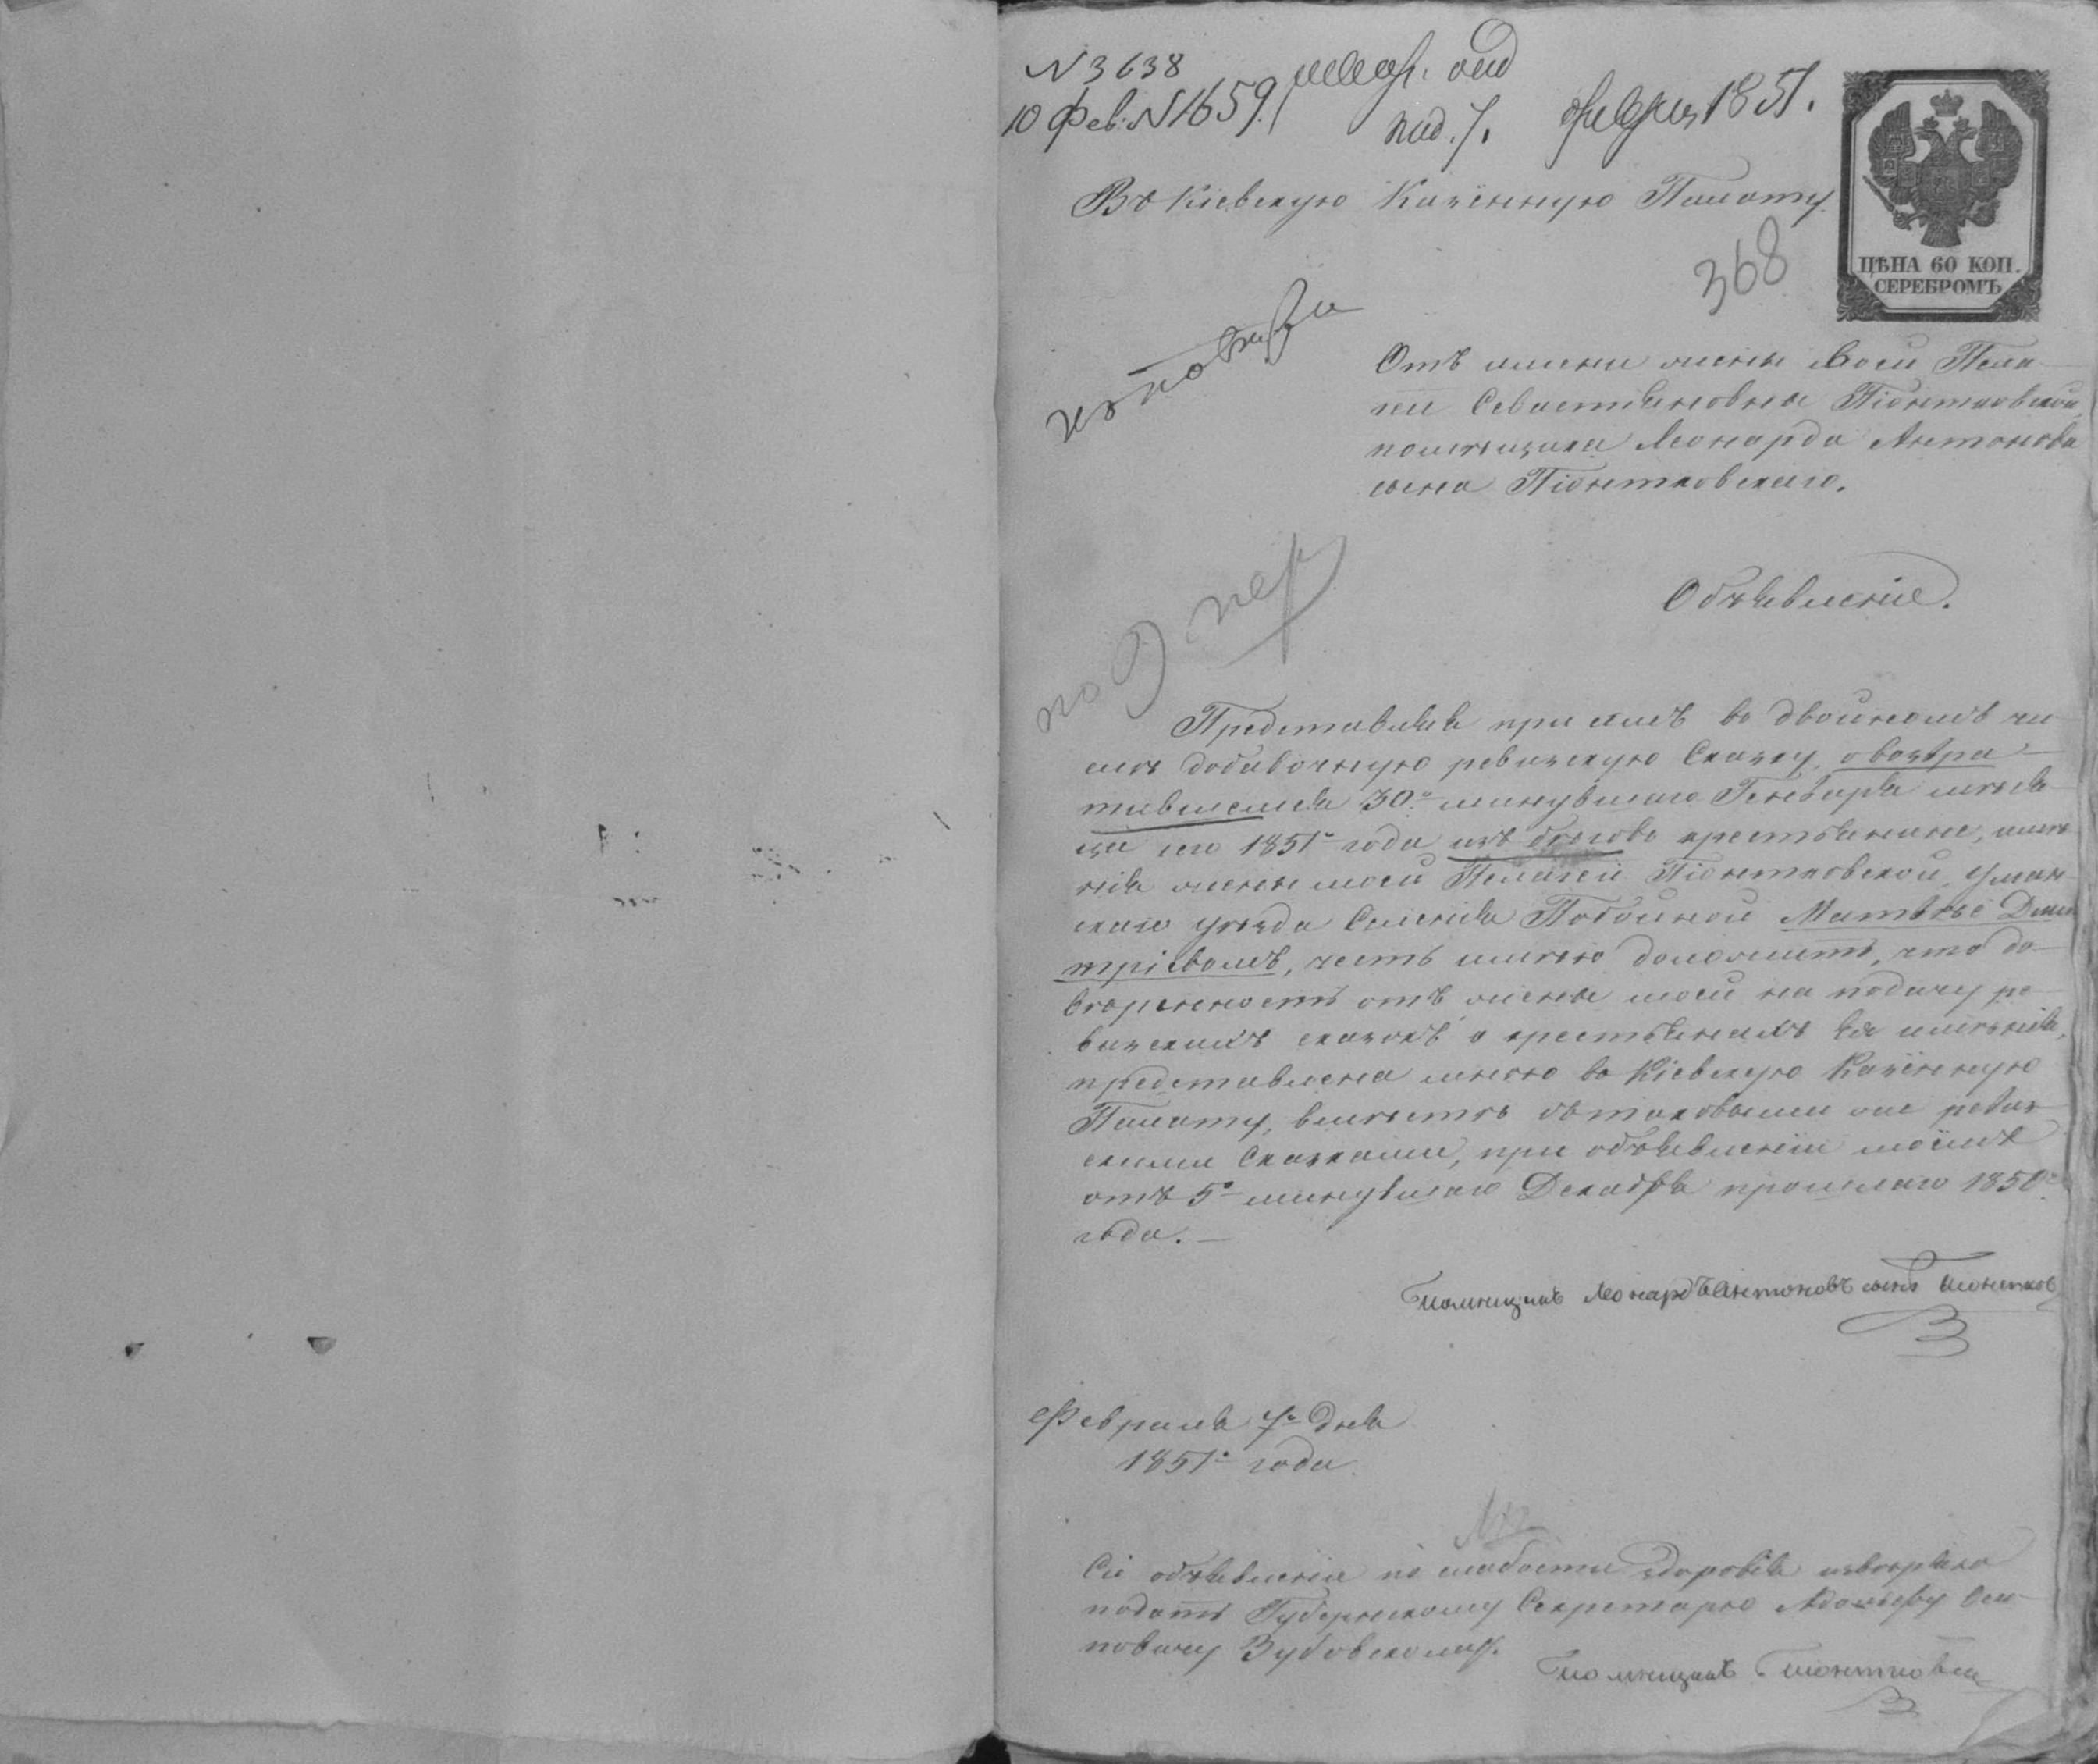 N 3638
10 Фев. N 1659.
пол. 7. февраля 1851.
Въ Кіевскую Казенную Палату.
ЦѢНА 60 КОП.
СЕРЕБРОМЪ
368
Отъ имени жены своей Пела-
геи Севастіановны Піонтковской,
помѣщика Леонарда Антонова
сына Піонтковскаго.
Объявленіе.
Представляя при семъ во двойномъ чи-
слѣ добавочную ревизскую сказку, о возвра-
тившемся 30го минувшаго Генваря мѣся-
ца сего 1851го года изъ бѣговъ крестьянине, имѣ-
нія жены моей Пелагеи Піонтковской, Уман-
скаго уѣзда Селенія Побойной Матвѣе Дми-
тріевомъ, честь имѣю доложить, что до-
вѣренность отъ жены моей на подачу ре-
визскихъ сказокъ о крестьянахъ ея имѣнія,
представлена мною въ Кіевскую Казенную
Палату, вмѣстѣ съ таковыми же ревиз-
скими сказками, при объявленіи моемъ
отъ 5го минувшаго Декабря прошлаго 1850го
года. —
Помѣщикъ Леонардъ Антоновъ сынъ Піонтков
Февраля 7го дня
1851го года.
Сіе объявленіе по слабости здоровія ввѣряю
подать Губернскому Секретарю Адольфу Оси-
повичу Зубовскому.
Помѣщикъ Піонтковск